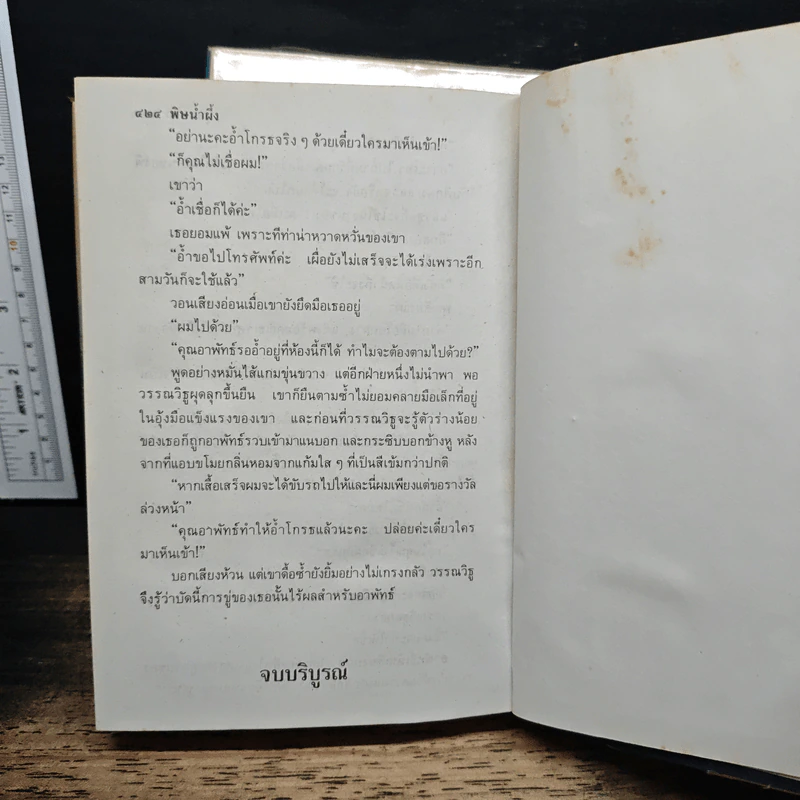 ๔๒๔ พิษน้ำผึ้ง
“อย่านะคะอ้ำโกรธจริง ๆ ด้วยเดี๋ยวใครมาเห็นเข้า!”
“ก็คุณไม่เชื่อผม!”
เขาว่า
“อ้ำเชื่อก็ได้ค่ะ”
เธอยอมแพ้ เพราะทีท่าน่าหวาดหวั่นของเขา
“อ้ำขอไปโทรศัพท์ค่ะ เผื่อยังไม่เสร็จจะได้เร่งเพราะอีก
สามวันก็จะใช้แล้ว”
วอนเสียงอ่อนเมื่อเขายังยึดมือเธออยู่
“ผมไปด้วย”
“คุณอาพัทธ์รออ้ำอยู่ที่ห้องนี้ก็ได้ ทำไมจะต้องตามไปด้วย?”
พูดอย่างหมั่นไส้แกมขุ่นขวาง แต่อีกฝ่ายหนึ่งไม่นำพา พอ
วรรณวิธูผุดลุกขึ้นยืน เขาก็ยืนตามซ้ำไม่ยอมคลายมือเล็กที่อยู่
ในอุ้งมือแข็งแรงของเขา และก่อนที่วรรณวิธูจะรู้ตัวร่างน้อย
ของเธอก็ถูกอาพัทธ์รวบเข้ามาแนบอก และกระซิบบอกข้างหู หลัง
จากที่แอบขโมยกลิ่นหอมจากแก้มใส ๆ ที่เป็นสีเข้มกว่าปกติ
“หากเสื้อเสร็จผมจะได้ขับรถไปให้และนี่ผมเพียงแต่ขอรางวัล
ล่วงหน้า”
“คุณอาพัทธ์ทำให้อ้ำโกรธแล้วนะคะ ปล่อยค่ะเดี๋ยวใคร
มาเห็นเข้า!”
บอกเสียงห้วน แต่เขาดื้อซ้ำยังยิ้มอย่างไม่เกรงกลัว วรรณวิธู
จึงรู้ว่าบัดนี้การขู่ของเธอนั้นไร้ผลสำหรับอาพัทธ์
จบบริบูรณ์